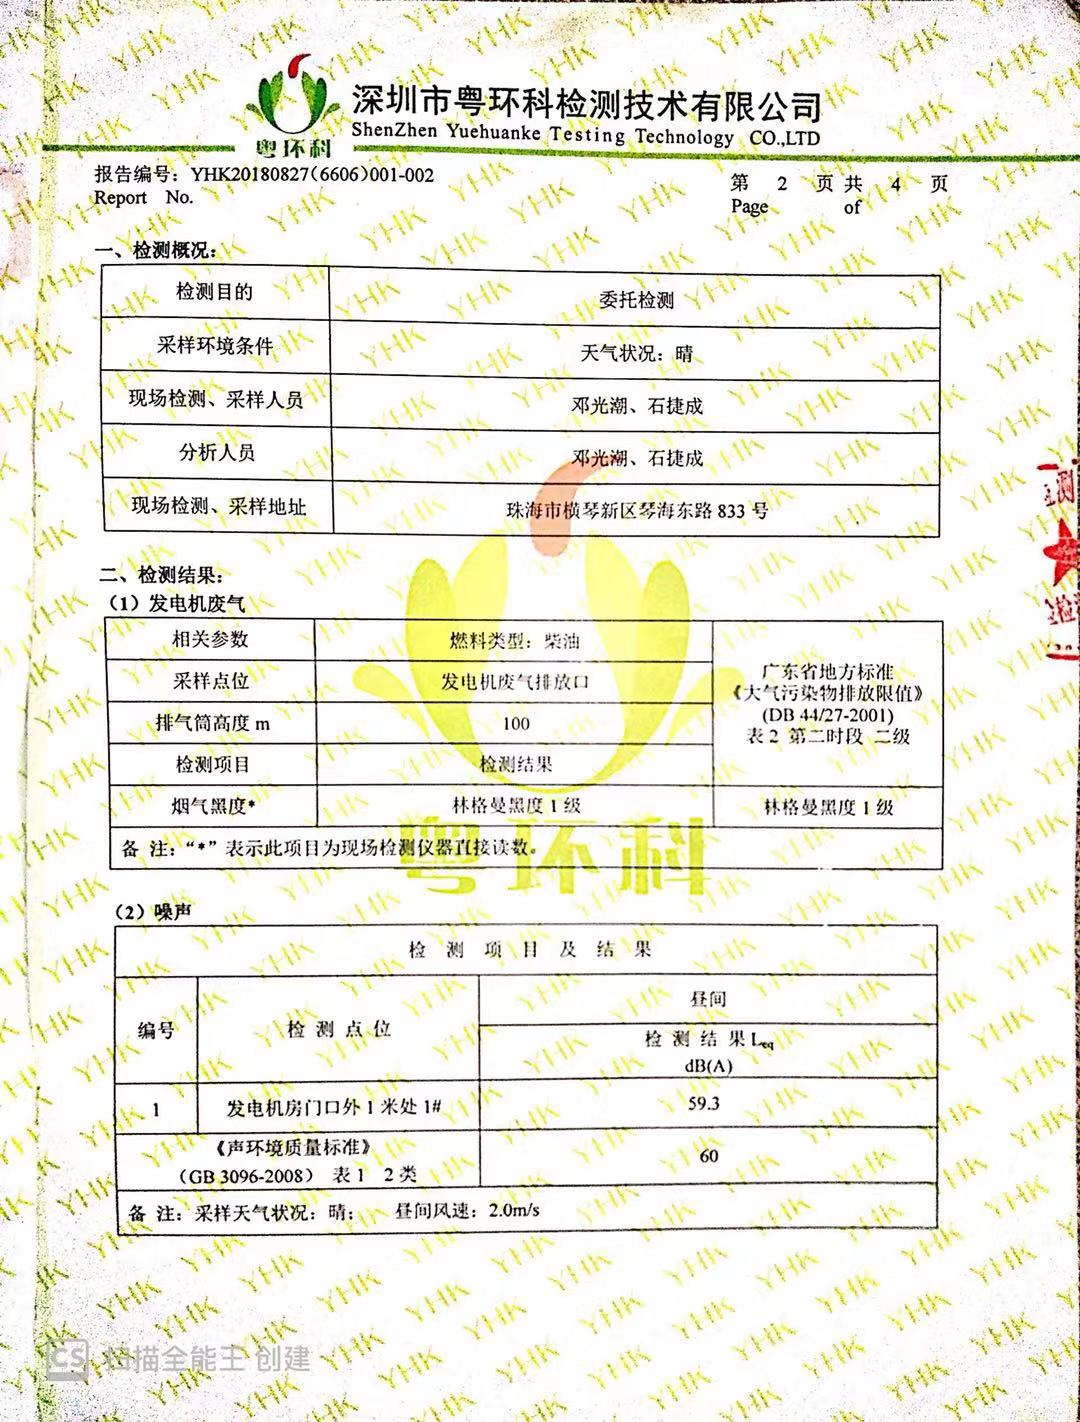 深圳市粤环科检测技术有限公司
ShenZhen Yuehuanke Testing Technology CO.,LTD
粤环科
报告编号：YHK20180827(6606)001-002
Report No.
第 2 页 共 4 页
Page of
一、检测概况：
检测目的 委托检测
采样环境条件 天气状况：晴
现场检测、采样人员 邓光潮、石捷成
分析人员 邓光潮、石捷成
现场检测、采样地址 珠海市横琴新区琴海东路 833 号
二、检测结果：
（1）发电机废气
相关参数 燃料类型：柴油
采样点位 发电机废气排放口
排气筒高度 m 100
检测项目 检测结果
广东省地方标准
《大气污染物排放限值》
(DB 44/27-2001)
表 2 第二时段 二级
烟气黑度* 林格曼黑度 1 级 林格曼黑度 1 级
备 注：“*”表示此项目为现场检测仪器直接读数。
粤环科
（2）噪声
检 测 项 目 及 结 果
编号 检 测 点 位 昼间
检 测 结 果 Leq
dB(A)
1 发电机房门口外 1 米处 1# 59.3
《声环境质量标准》
（GB 3096-2008） 表 1 2 类 60
备 注：采样天气状况：晴； 昼间风速：2.0m/s
CS 扫描全能王 创建
YHK